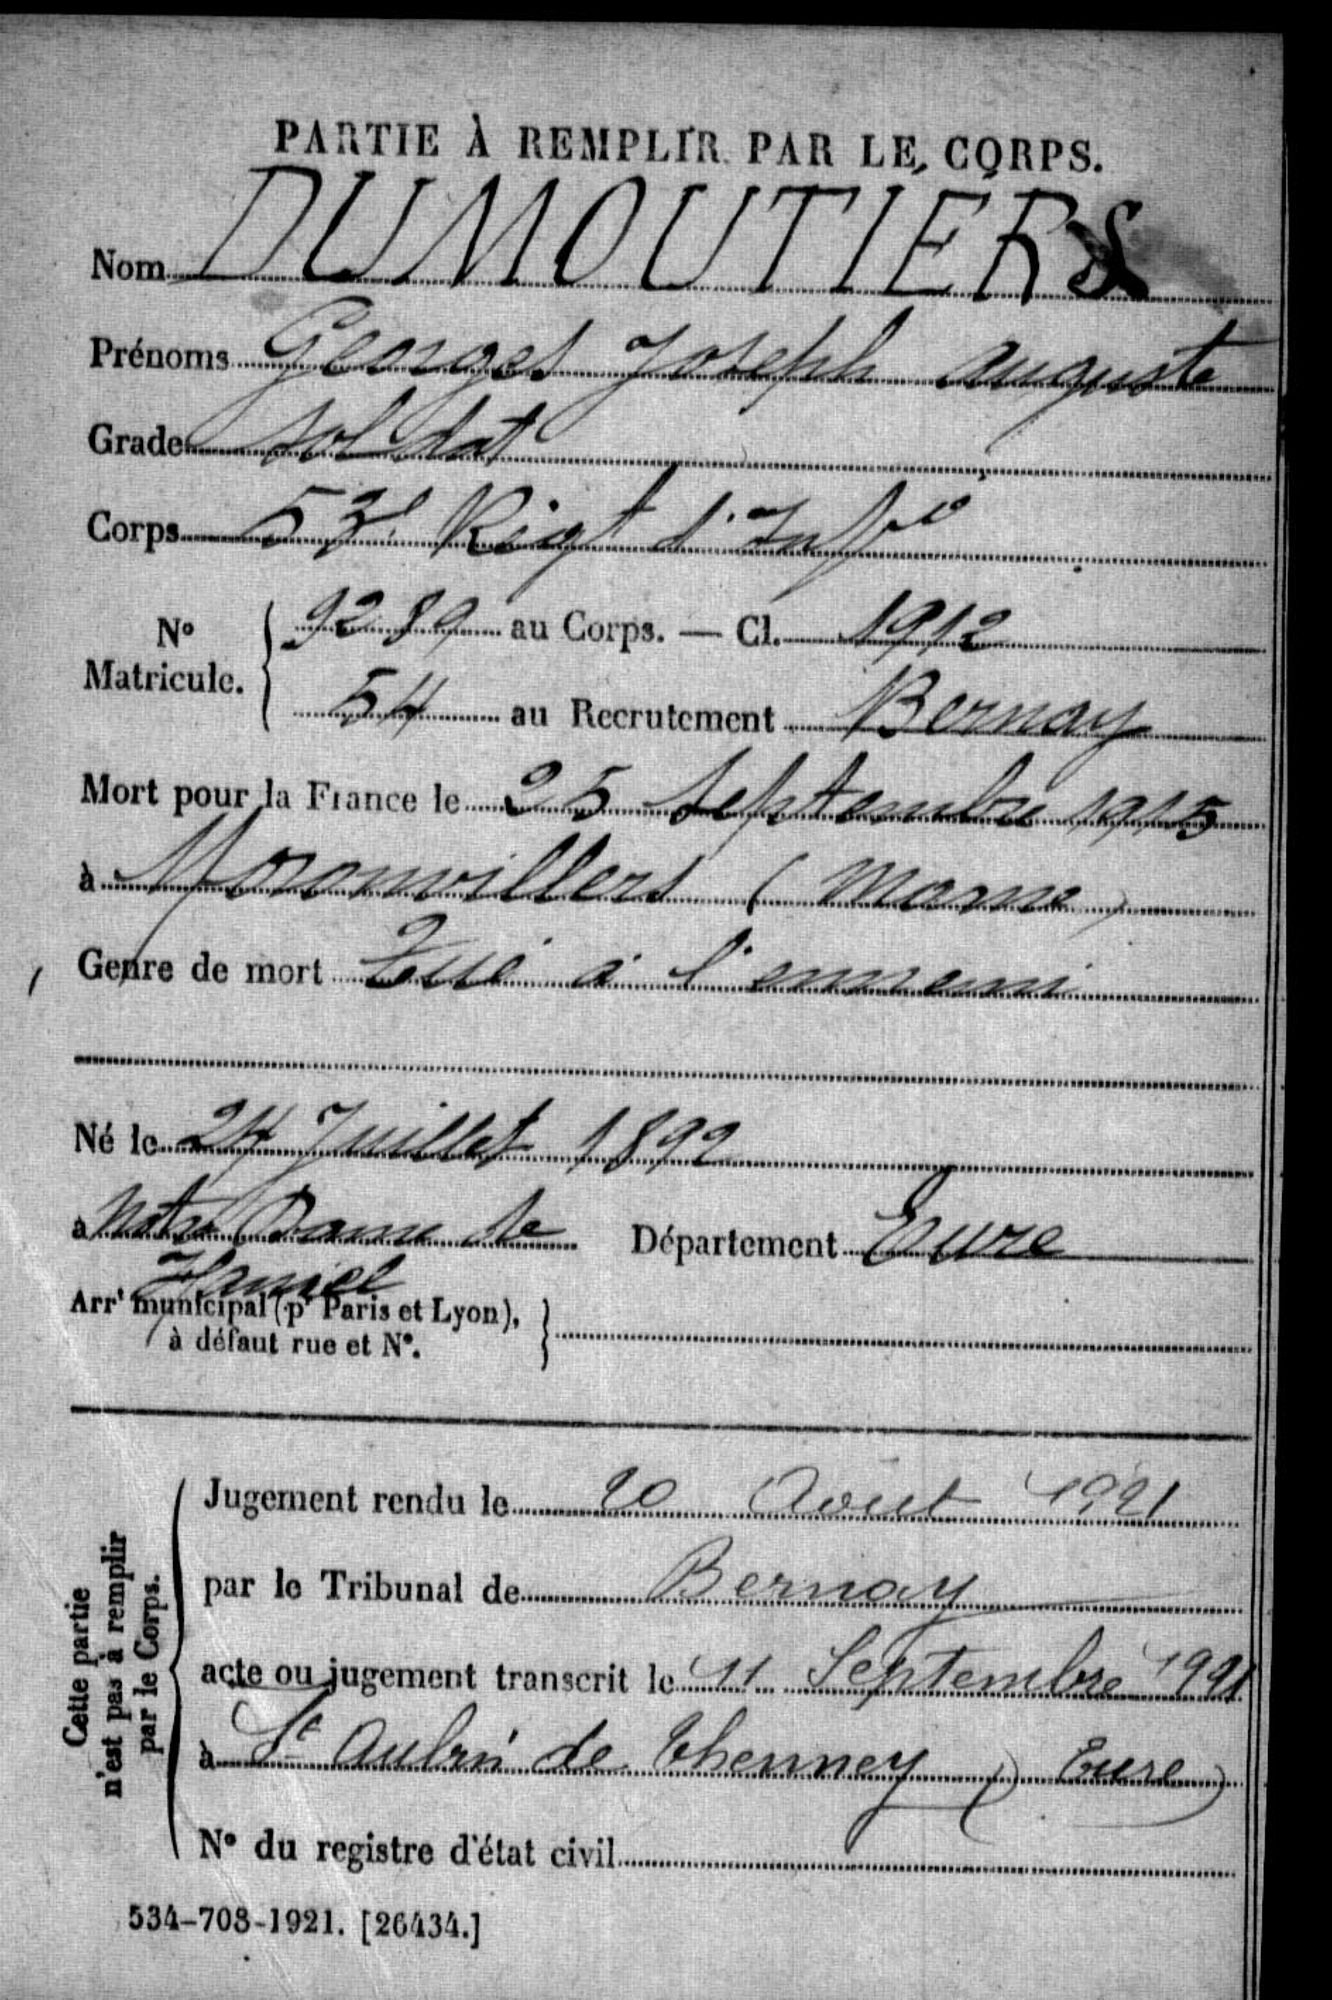 PARTIE À REMPLIR PAR LE CORPS.
Nom DUMOUTIERS
Prénoms Georges Joseph Auguste
Grade Soldat
Corps 53e Régt d'Infie
No Matricule. { 9289 au Corps. — Cl. 1912
54 au Recrutement Bernay
Mort pour la France le 25 Septembre 1915
à Moronvillers (Marne)
Genre de mort Tué à l'ennemi
Né le 24 Juillet 1892
à Notre Dame de Département Eure
Hamel
Arrt municipal (pr Paris et Lyon),
à défaut rue et No.
Cette partie
n'est pas à remplir
par le Corps.
Jugement rendu le 20 Aout 1921
par le Tribunal de Bernay
acte ou jugement transcrit le 11 Septembre 1921
à St Aubin de Thenney (Eure)
No du registre d'état civil
534-708-1921. [26434.]